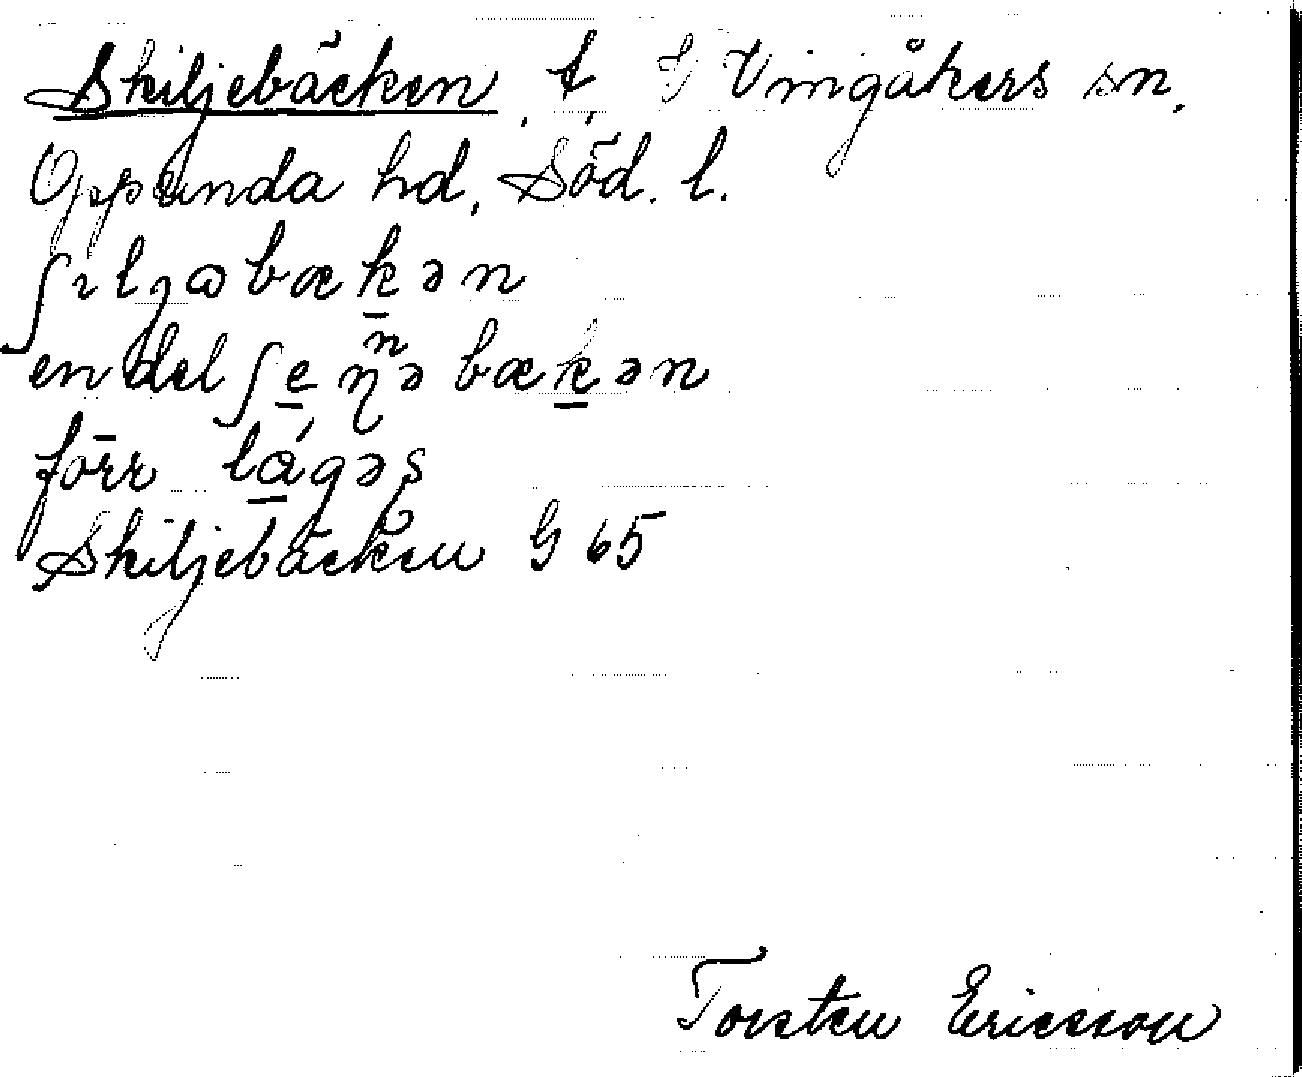 Skiljebäcken, t, V Vingåkers sn,
Oppunda hd, Söd. l.
bækən
en del bækən
förr
Skiljebäcken G 65
Torsten Ericsson